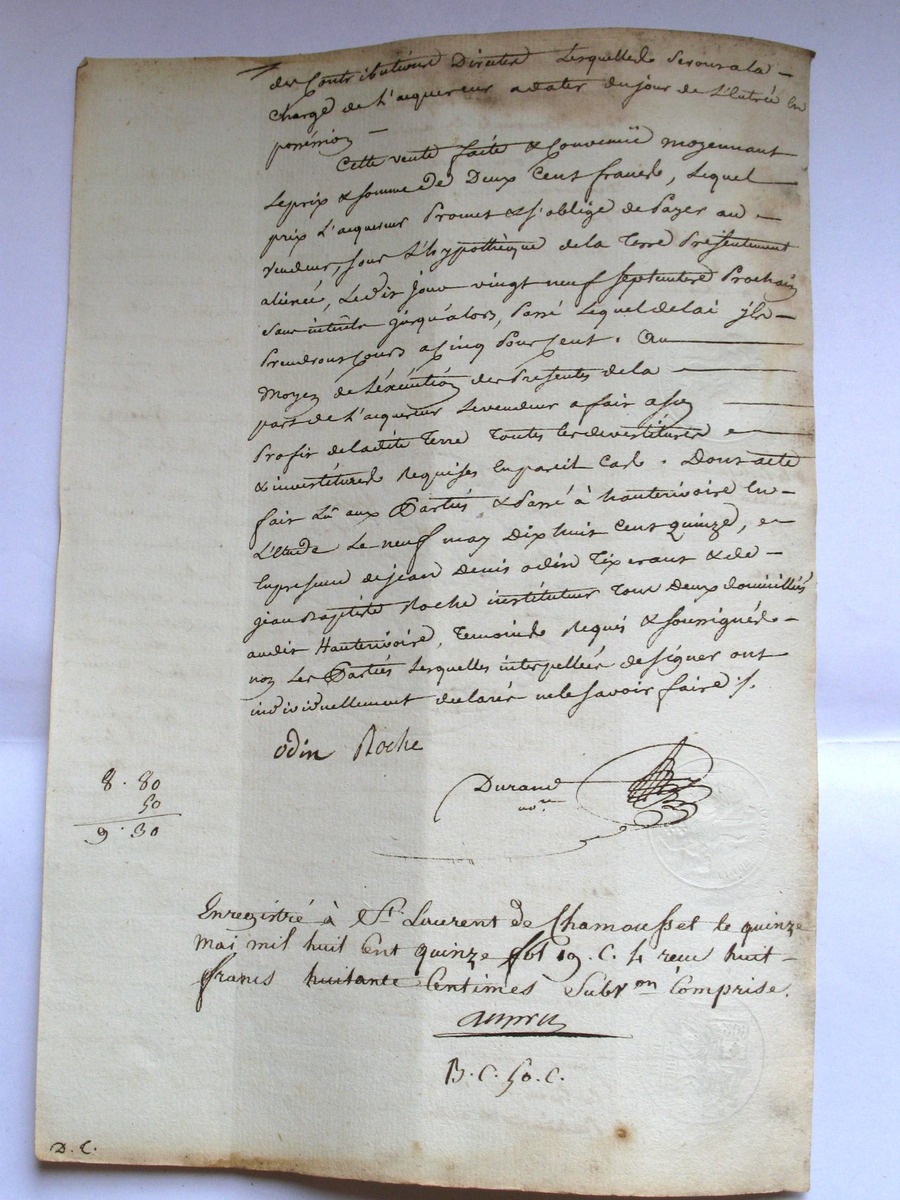 des Contributions Directes Lesquelles Serons a la -
Charge de L'acquereur a dater du jour de L'Entrée En
possession -
Cette vente faite & Convenüe moyennant
Le prix & somme de Deux Cent francs, Lequel
prix L'acquereur Promet & s'oblige de Payer au -
vendeur, sous L'hypothèque de la Terre Présentement
aliénée, Le dix jour vingt neuf Septembre Prochain
Sans intérêts jusqu'alors, Passé Lequel delai ils -
Prendrons Cours a Cinq Pour Cent. Au
Moyen de L'exécution des Présentes de la
part de L'acquereur Le vendeur a fait a son
Profit de ladite Terre Toutes les devestitures
& investitures Requises En pareil Cas. Dont acte
fait Lû aux Parties & Passé à hauterivoire En -
L'Etude Le neuf may Dix huit Cent quinze, e -
En presence de jean Denis odin Tixerant & de -
jean Baptiste Roche instituteur Tous Deux domiciliés
audit Hauterivoire, Temoins Requis & soussignés -
non Les Parties Lesquelles interpellées de signer ont
individuellement déclaré ne le savoir faire ./.
odin Roche
Durand
no.re
8. 80
50
9. 30
Enregistré à St. Laurent de Chamousset le quinze
Mai mil huit Cent quinze fol 19. C. 4 reçu huit -
francs huitante Centimes Subv.on Comprise.
B. C. 50. C.
D. C.